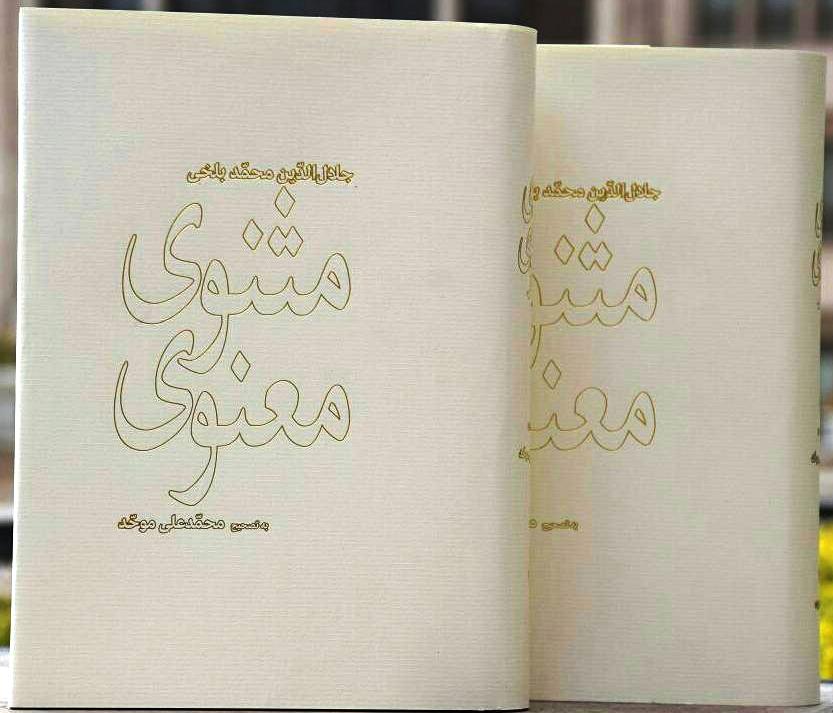 جلال‌الدّین محمّد بلخی
مثنوی
معنوی
به تصحیح محمّدعلی موحّد
جلال‌الدّین محمّد
مثنو
معنو
به تصحیح